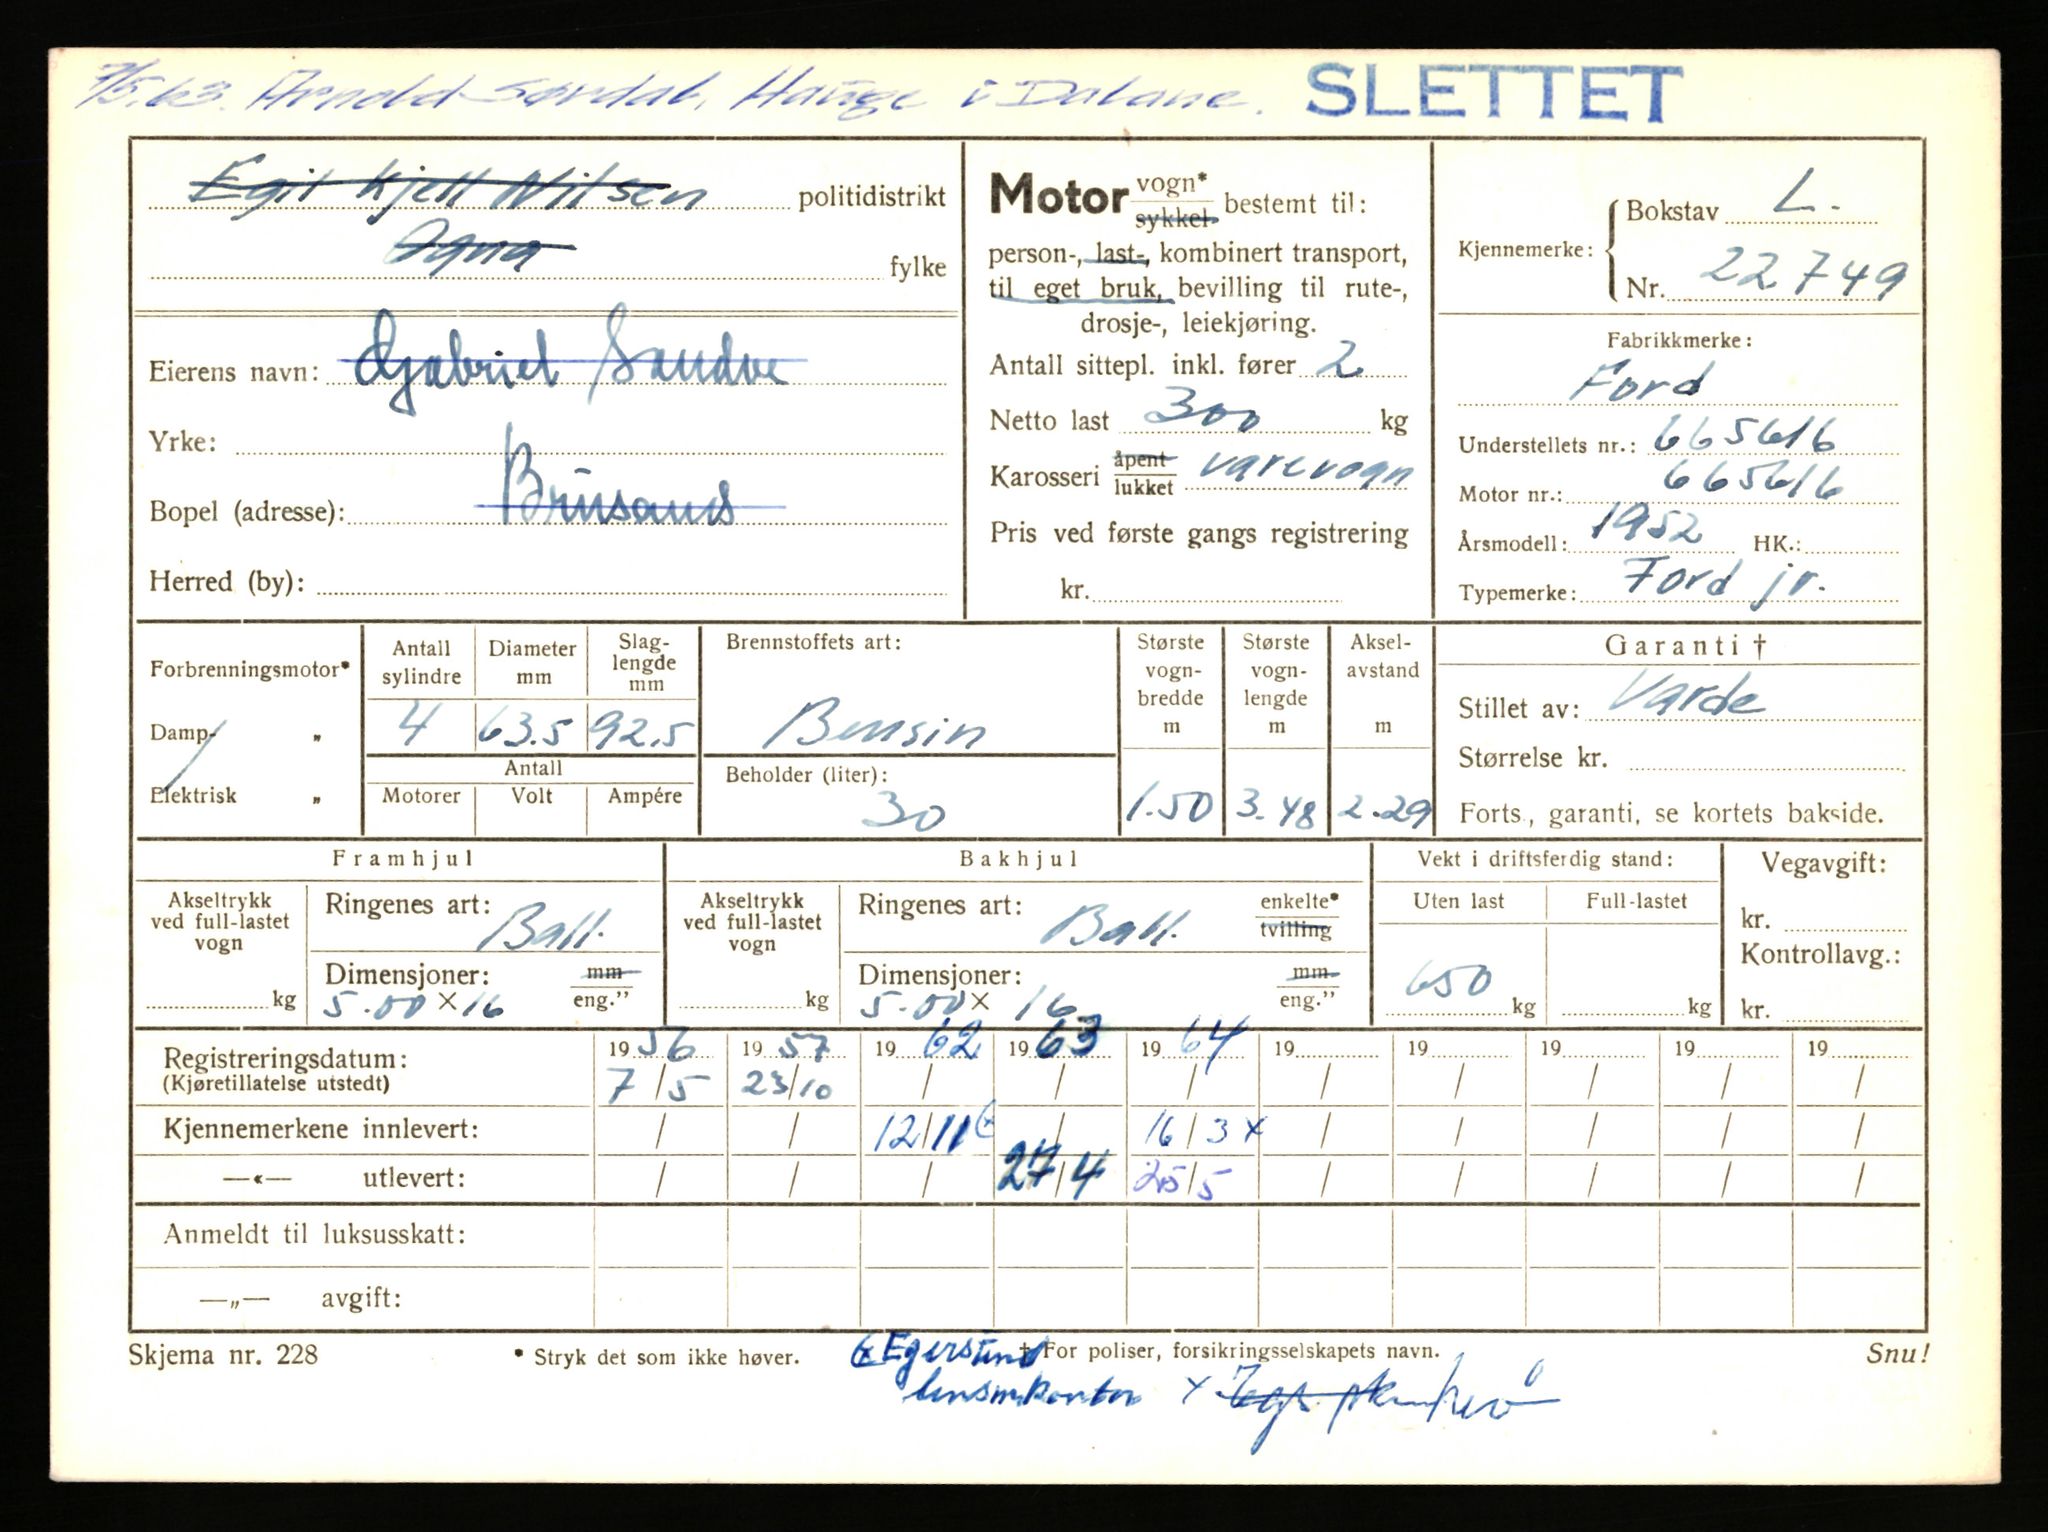 7/5.63. Arnold Sørdal, Hauge i Dalane. SLETTET
Egil Kjell Nilsen politidistrikt
Ogna fylke
Eierens navn: Gabriel Sandve
Yrke:
Bopel (adresse): Brusand
Herred (by):
Motor vogn* sykkel bestemt til:
person-, last-, kombinert transport,
til eget bruk, bevilling til rute-,
drosje-, leiekjøring.
Antall sittepl. inkl. fører 2
Netto last 300 kg
Karosseri åpent lukket varevogn
Pris ved første gangs registrering
kr.
Kjennemerke: Bokstav L.
Nr. 22749
Fabrikkmerke:
Ford
Understellets nr.: 665616
Motor nr.: 665616
Årsmodell: 1952 HK.:
Typemerke: Ford jr.
Forbrenningsmotor*
Damp- „
Elektrisk „
Antall sylindre Diameter mm Slag-lengde mm
4 63.5 92.5
Antall
Motorer Volt Ampére
Brennstoffets art:
Bensin
Beholder (liter):
30
Største vogn-bredde m Største vogn-lengde m Aksel-avstand m
1.50 3.48 2.29
Garanti †
Stillet av: Varde
Størrelse kr.
Forts., garanti, se kortets bakside.
Framhjul
Akseltrykk ved full-lastet vogn
kg
Ringenes art: Ball.
Dimensjoner: mm eng.”
5.00 x 16
Bakhjul
Akseltrykk ved full-lastet vogn
kg
Ringenes art: Ball. enkelte* tvilling
Dimensjoner: mm eng.”
5.00 x 16
Vekt i driftsferdig stand:
Uten last Full-lastet
650 kg kg
Vegavgift:
kr.
Kontrollavg.:
kr.
Registreringsdatum: 1956 1957 1962 1963 1964 19 19 19 19 19
(Kjøretillatelse utstedt) 7/5 23/10 / / / / / / / /
Kjennemerkene innlevert: / / 12/11 (x / 16/3 x / / / / /
—«— utlevert: / / / 27/4 25/5 / / / / /
Anmeldt til luksusskatt:
—„— avgift:
Skjema nr. 228 * Stryk det som ikke høver. † For poliser, forsikringsselskapets navn. Snu!
(x Egersund
lensm.kontor x